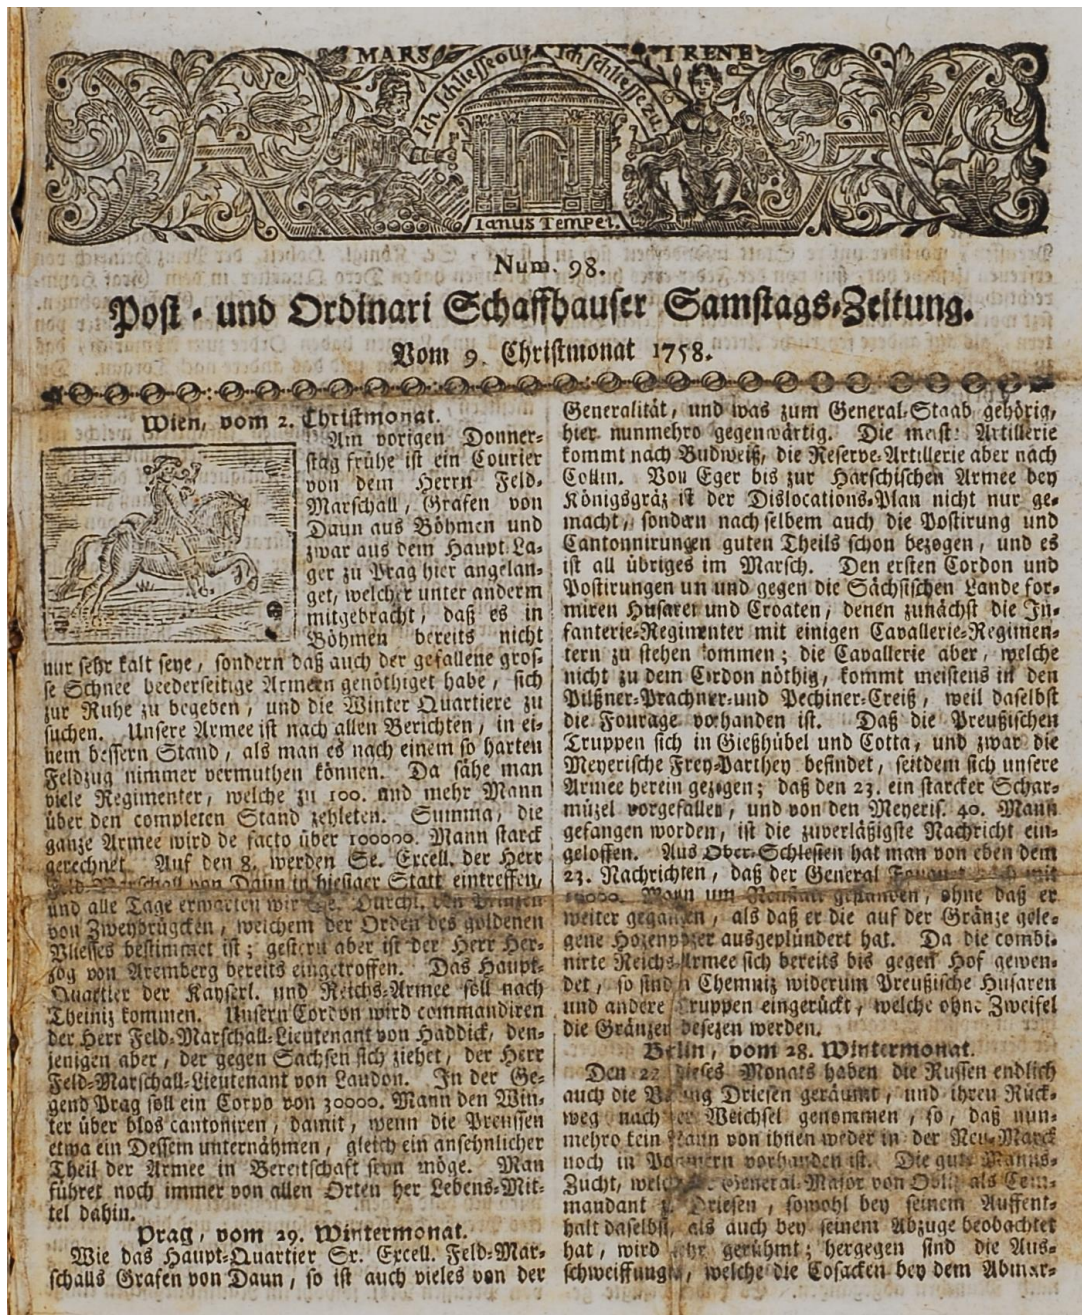 MARS
IRENE
Ich schliesse auf Ich schliesse zu
Ianus Tempel.
Num. 98.
Post- und Ordinari Schaffhauser Samstags-Zeitung.
Vom 9. Christmonat 1758.
Wien, vom 2. Christmonat.
Am vorigen Donner-
stag frühe ist ein Courier
von dem Herrn Feld-
Marschall, Grafen von
Daun aus Böhmen und
zwar aus dem Haupt-La-
ger zu Prag hier angelan-
get, welcher unter anderm
mitgebracht, daß es in
Böhmen bereits nicht
nur sehr kalt seye, sondern daß auch der gefallene gros-
se Schnee beederseitige Armeen genöthiget habe, sich
zur Ruhe zu begeben, und die Winter Quartiere zu
suchen. Unsere Armee ist nach allen Berichten, in ei-
nem bessern Stand, als man es nach einem so harten
Feldzug nimmer vermuthen können. Da sähe man
viele Regimenter, welche zu 100. und mehr Mann
über den completen Stand zehleten. Summa, die
ganze Armee wird de facto über 100000. Mann starck
gerechnet. Auf den 8. werden Se. Excell. der Herr
Feld-Marschall von Daun in hiesiger Statt eintreffen,
und alle Tage erwarten wir Se. Durchl. den Prinzen
von Zweybrücken, welchem der Orden des guldenen
Vliesses bestimmet ist; gestern aber ist der Herr Her-
zog von Aremberg bereits eingetroffen. Das Haupt-
Quartier der Kayserl. und Reichs-Armee soll nach
Theiniz kommen. Unsern Cordon wird commandiren
der Herr Feld-Marschall-Lieutenant von Haddick, den-
jenigen aber, der gegen Sachsen sich ziehet, der Herr
Feld-Marschall-Lieutenant von Laudon. In der Ge-
gend Prag soll ein Corpo von 30000. Mann den Win-
ter über blos cantoniren, damit, wenn die Preussen
etwa ein Dessein unternähmen, gleich ein ansehnlicher
Theil der Armee in Bereitschaft seyn möge. Man
führet noch immer von allen Orten her Lebens-Mit-
tel dahin.
Prag, vom 29. Wintermonat.
Wie das Haupt-Quartier Sr. Excell. Feld-Mar-
schalls Grafen von Daun, so ist auch vieles von der
Generalität, und was zum General-Staab gehörig,
hier nunmehro gegenwärtig. Die meiste Artillerie
kommt nach Budweiß, die Reserve-Artillerie aber nach
Collin. Von Eger bis zur Harschischen Armee bey
Königsgräz ist der Dislocations-Plan nicht nur ge-
macht, sondern nach selbem auch die Postirung und
Cantonnirungen guten Theils schon bezogen, und es
ist all übriges im Marsch. Den ersten Cordon und
Postirungen un und gegen die Sächsischen Lande for-
miren Husaren und Croaten, denen zunächst die In-
fanterie-Regimenter mit einigen Cavallerie-Regimen-
tern zu stehen kommen; die Cavallerie aber, welche
nicht zu dem Cordon nöthig, kommt meistens in den
Pilßner-Prachner-und Pechiner-Creiß, weil daselbst
die Fourage vorhanden ist. Daß die Preußischen
Truppen sich in Gießhübel und Cotta, und zwar die
Meyerische Frey-Parthey befindet, seitdem sich unsere
Armee herein gezogen; daß den 23. ein starcker Schar-
müzel vorgefallen, und von den Meyeris. 40. Mann
gefangen worden, ist die zuverläßigste Nachricht ein-
geloffen. Aus Ober-Schlesien hat man von eben dem
23. Nachrichten, daß der General Fouquet mit
Mann um Neustatt gestanden, ohne daß er
weiter gegangen, als daß er die auf der Gränze gele-
gene Hozenplozer ausgeplündert hat. Da die combi-
nirte Reichs-Armee sich bereits bis gegen Hof gewen-
det, so sind in Chemniz widerum Preußische Husaren
und andere Truppen eingerückt, welche ohne Zweifel
die Gränzen besezen werden.
Berlin, vom 28. Wintermonat.
Den 22 dieses Monats haben die Russen endlich
auch die Vestung Driesen geräumt, und ihren Rück-
weg nach der Weichsel genommen, so, daß nun-
mehro kein Mann von ihnen weder in der Neu-Marck
noch in Pommern vorhanden ist. Die gute Manns-
Zucht, welche General-Major von als Com-
mandant zu Driesen, sowohl bey seinem Auffent-
halt daselbst, als auch bey seinem Abzuge beobachtet
hat, wird sehr gerühmt; hergegen sind die Aus-
schweiffungen, welche die Cosacken bey dem Abmar-